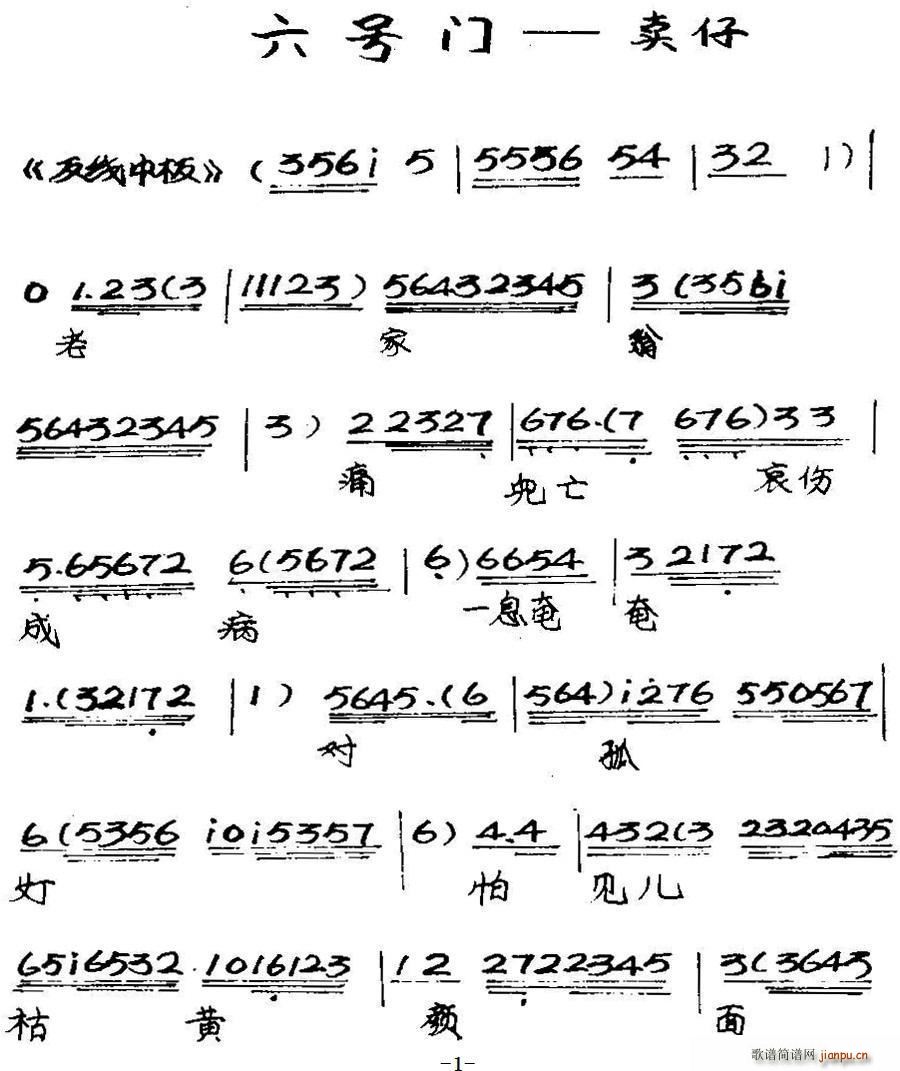 六号门——卖仔
《反线中板》 ( 356i 5 | 5556 54 | 32 1 ) |
0 1.23(3 | 11123) 56432345 | 3 (356i
老 家 翁
56432345 | 3 ) 2 2327 | 676.(7 676)33 |
痛 儿亡 哀伤
5.65672 6(5672 | 6)6654 | 3 2172
成 病 一息奄 奄
1.(32172 | 1 ) 5645.(6 | 564)i276 550567 |
对 孤
6(5356 i0i5357 | 6) 4.4 | 432(3 2320435
灯 怕 见儿
65i6532 1016123 | 12 2722345 | 3(3643
枯 黄 颜 面
-1-
歌谱简谱网 jianpu.cn